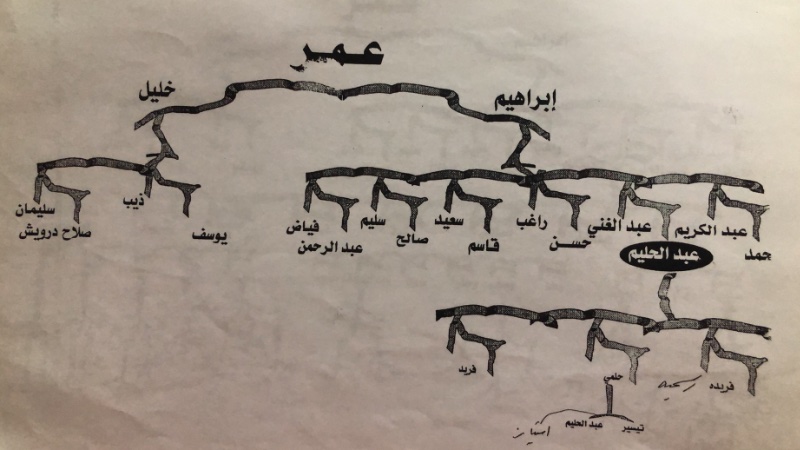 عمر
إبراهيم
خليل
عبد الكريم
عبد الغني
راغب
سعيد
سليم
فياض
حسن
قاسم
صالح
عبد الرحمن
عبد الحليم
ذيب
سليمان
يوسف
صلاح درويش
فريده
حلمي
فريد
تيسير
عبد الحليم